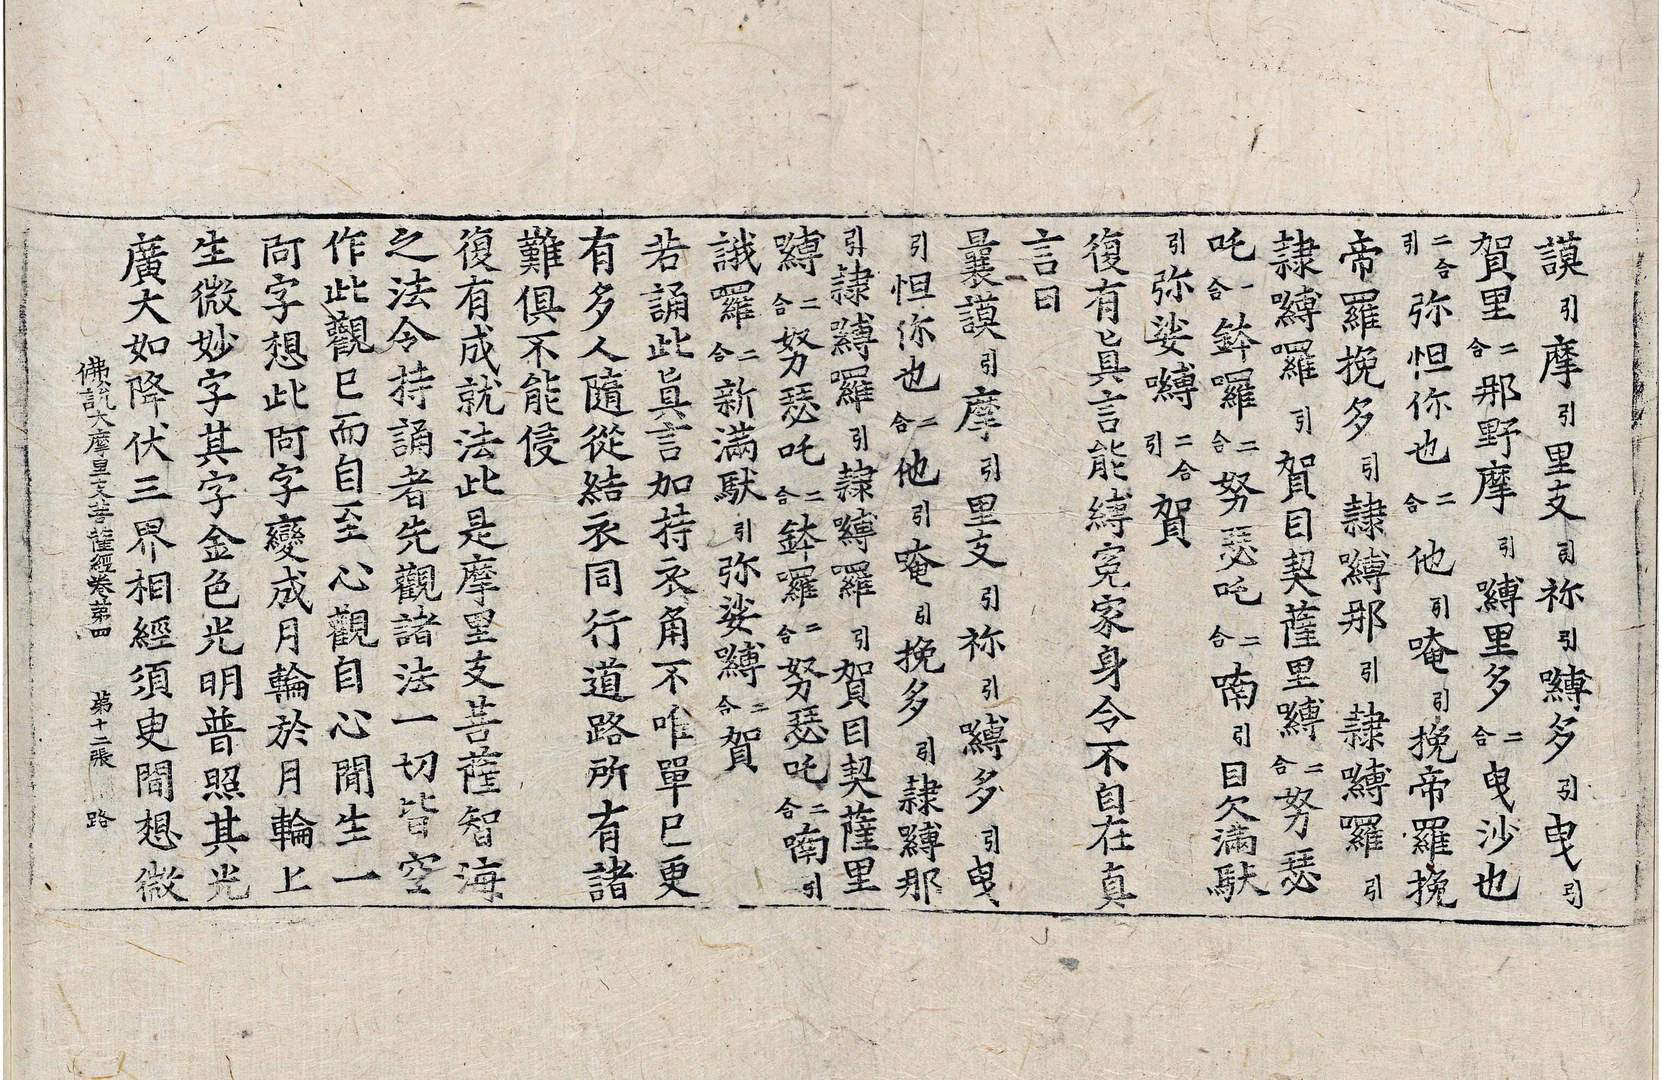 謨引摩引里支引祢引嚩多引曳引
賀里二合那野摩引嚩里多二合曳沙也
二合引弥怛你也二合他引唵引挽帝羅挽
帝羅挽多引隷嚩那引隷嚩囉引
隷嚩囉引賀目契薩里嚩二合努瑟
吒一合鉢羅二合努瑟吒二合喃引目欠滿馱
引弥娑嚩二合引賀
復有真言能縛冤家身令不自在真
言曰
曩謨引摩引里支引祢引嚩多引曳
引怛你也二合他引唵引挽多引隷嚩那
引隷嚩囉引隷嚩囉引賀目契薩里
嚩二合努瑟吒二合鉢囉二合努瑟吒二合喃引
誐羅二合新滿馱引弥娑嚩二合賀
若誦此真言加持衣角不唯單已更
有多人隨從結衣同行道路所有諸
難俱不能侵
復有成就法此是摩里支菩薩智海
之法令持誦者先觀諸法一切皆空
作此觀已而自至心觀自心間生一
阿字想此阿字變成月輪於月輪上
生微妙字其字金色光明普照其光
廣大如降伏三界相經須臾間想微
佛說大摩里支菩薩經卷第四 第十二張 路